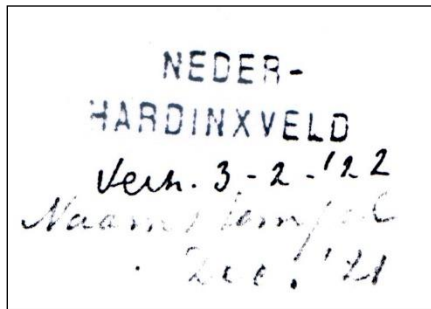 NEDER-
HARDINXVELD
Verh. 3-2-'22
Naamstempel
Dec. '21